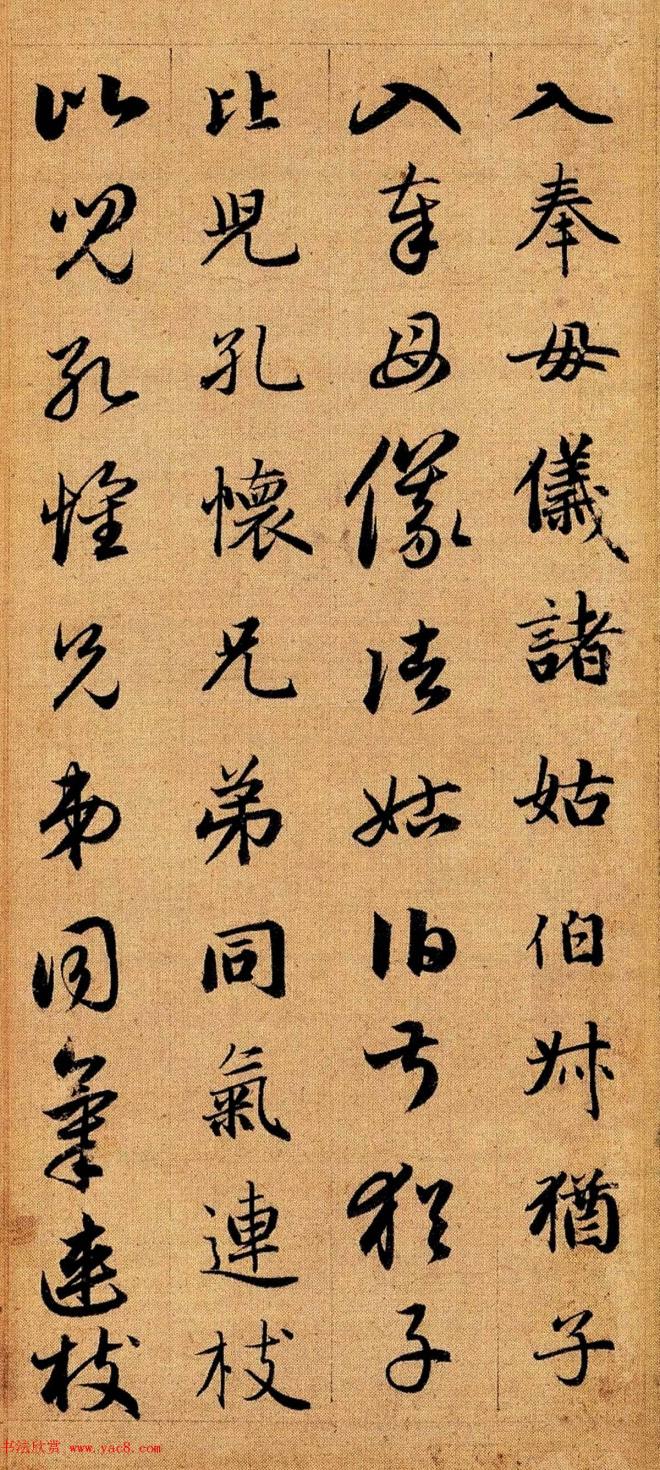 入奉母儀諸姑伯叔猶子
入奉母儀諸姑伯叔猶子
比兒孔懷兄弟同氣連枝
比兒孔懷兄弟同氣連枝
书法欣赏 www.yac8.com